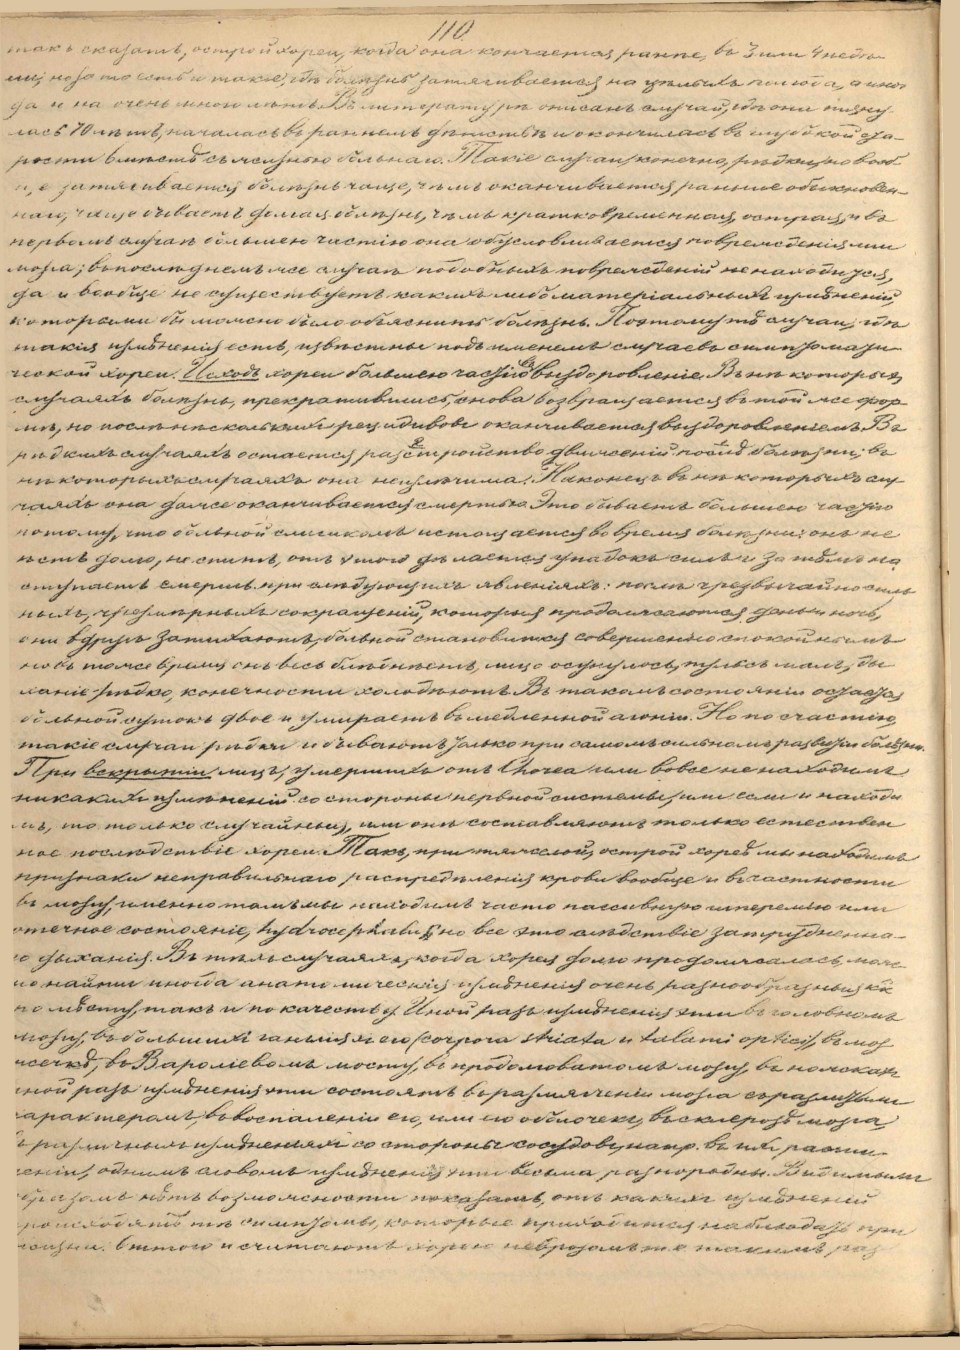 110.
такъ сказать, острой хореи, когда она кончается раньше, въ 3 или 4 недѣ-
ли; но за то есть и такіе, гдѣ болѣзнь затягивается на цѣлыхъ полгода, а иног
да и на очень много лѣтъ. Въ литературѣ описанъ случай, гдѣ она тяну
лась 70 лѣтъ, началась въ раннемъ дѣтствѣ и окончилась въ глубокой ста-
рости вмѣстѣ съ жизнью больнаго. Такіе случаи, конечно, рѣдки, но вооб
ще затягивается болѣзнь чаще, чѣмъ оканчивается раньше обыкновен-
наго, чаще бываетъ долгая болѣзнь, чѣмъ кратковременная, острая, и въ
первомъ случаѣ большею частію она обусловливается поврежденіями
мозга; въ послѣднемъ же случаѣ подобныхъ поврежденій не находится,
да и вообще не существуетъ какихъ либо матеріальныхъ измѣненій,
которыми бы можно было объяснить болѣзнь. Поэтому тѣ случаи, гдѣ
такія измѣненія есть, извѣстны подъ именемъ случаевъ симптомати-
ческой хореи. Исходъ хореи большею частію въ выздоровленіе. Въ нѣкоторыхъ
случаяхъ болѣзнь, прекратившись, снова возвращается въ той же фор-
мѣ, но послѣ нѣсколькихъ рецидивовъ оканчивается выздоровленіемъ. Въ
рѣдкихъ случаяхъ остается разстройство движеній послѣ болѣзни; въ
нѣкоторыхъ случаяхъ она неизлѣчима. Наконецъ въ нѣкоторыхъ слу
чаяхъ она даже оканчивается смертью. Это бываетъ большею частію
потому, что больной слишкомъ истощается во время болѣзни: онъ не
ѣстъ долго, не спитъ, отъ этого дѣлается упадокъ силъ и затѣмъ на
ступаетъ смерть при слѣдующихъ явленіяхъ: послѣ чрезвычайно силь
ныхъ, чрезмѣрныхъ сокращеній, которыя продолжаются день и ночь,
они вдругъ затихаютъ, больной становится совершенно спокойнымъ
но въ тоже время онъ весь блѣднѣетъ, лицо осунулось, пульсъ малъ, ды
ханіе рѣдко, конечности холодѣютъ. Въ такомъ состояніи остается
больной сутокъ двое и умираетъ въ медленной агоніи. Но по счастію,
такіе случаи рѣдки и бываютъ только при самомъ сильномъ развитіи болѣзни.
При вскрытіи лицъ, умершихъ отъ Chorea или вовсе не находимъ
никакихъ измѣненій со стороны нервной системы, или если и находи
мъ, то только случайныя, или онѣ составляютъ только естествен
ное послѣдствіе хореи. Такъ, при тяжелой, острой хореѣ мы находимъ
признаки неправильнаго распредѣленія крови вообще и въ частности
въ мозгу, именно тамъ мы находимъ часто пассивную гиперемію или
отечное состояніе, hydrocephalus, но все это слѣдствіе затрудненна-
го дыханія. Въ тѣхъ случаяхъ, когда хорея долго продолжалась, мож-
но найти иногда анатомическія измѣненія очень разнообразныя кк
по мѣсту, такъ и по качеству. Иной разъ измѣненія эти въ головномъ
мозгу, въ большихъ гангліяхъ его (corpora striata и talami optici), въ моз
жечкѣ, въ Вароліевомъ мосту, въ продолговатомъ мозгу,
иной разъ измѣненія эти состоятъ въ размягченіи мозга съ различнымъ
характеромъ, въ воспаленіи его, или его оболочекъ, въ склерозѣ мозга,
въ различныхъ измѣненіяхъ со стороны сосудовъ, напр. въ ихъ расши-
реніи, однимъ словомъ измѣненія эти весьма разнородны. Видимымъ
образомъ нѣтъ возможности показать, отъ какихъ измѣненій
происходятъ тѣ симптомы, которые приходится наблюдать при
жизни. Оттого и считаютъ хорею неврозомъ т.е. такимъ раз